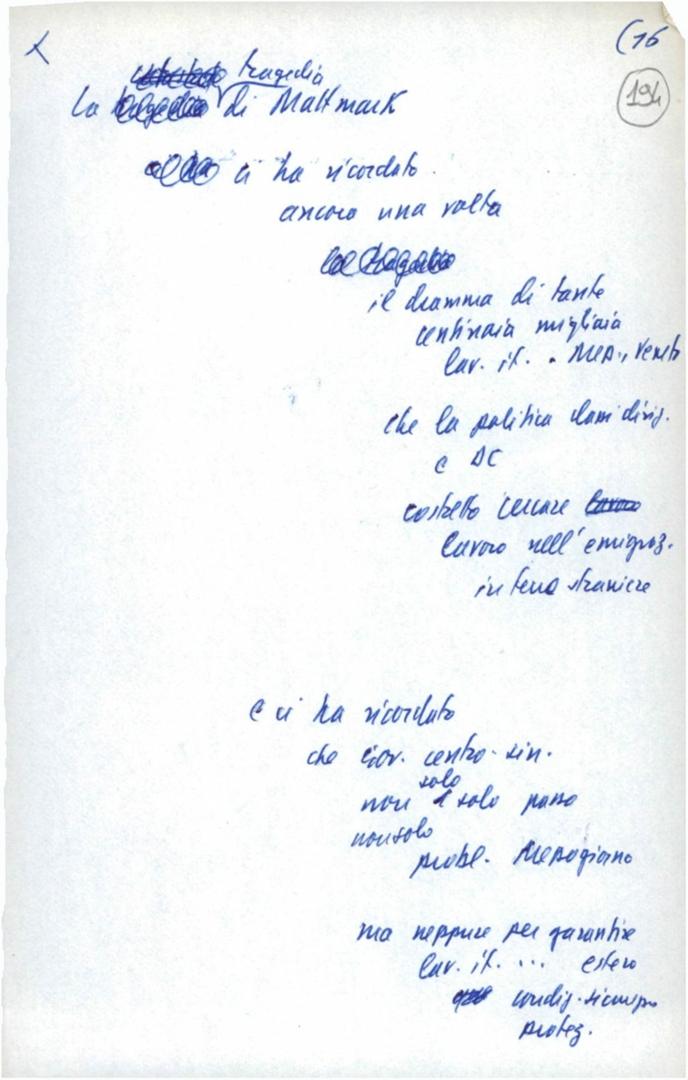 (16
194
tragedia
La di Mattmark
ci ha ricordato
ancora una volta
il dramma di tante
centinaia migliaia
lav. it. . Mer., Veneto
che la politica classi dirig.
e DC
costretto cercare
lavoro nell'emigraz.
in terra straniera
e ci ha ricordato
che Gov. centro-sin.
solo
non 1 solo passo
non solo
probl. Mezzogiorno
ma neppure per garantire
lav. it. ... estero
condiz. sicurezza
protez.